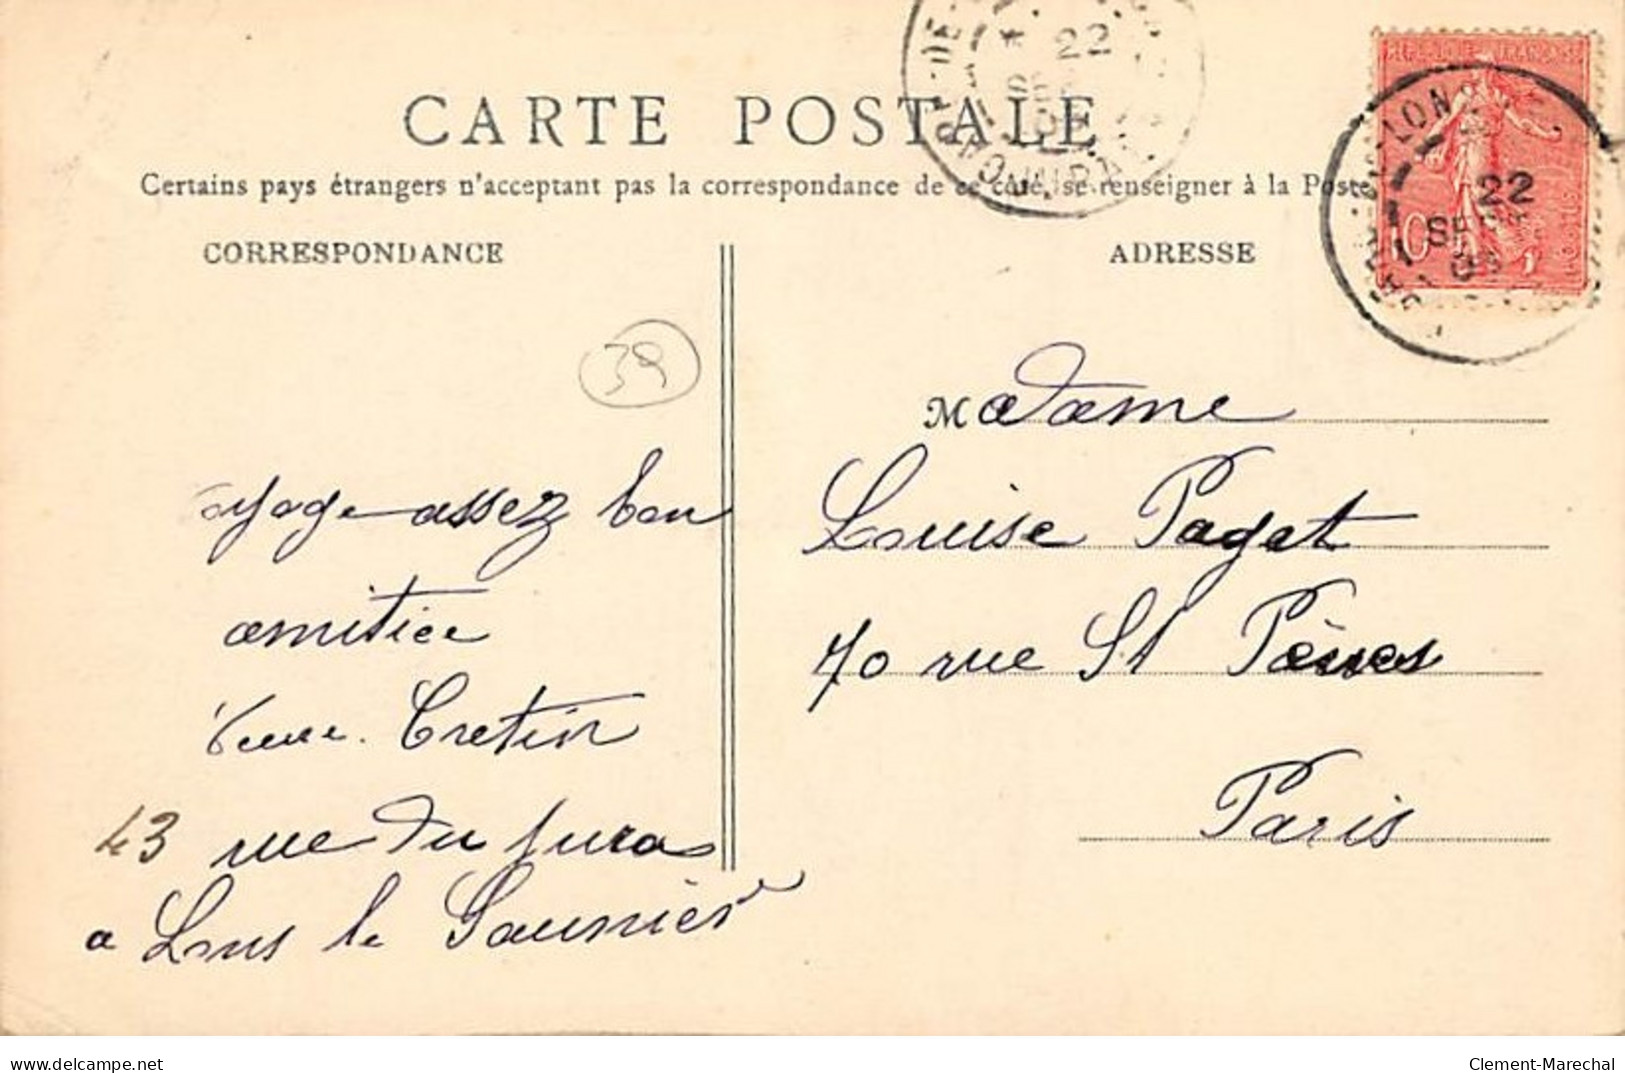 CARTE POSTALE
Certains pays étrangers n'acceptant pas la correspondance de ce côté, se renseigner à la Poste
CORRESPONDANCE
ADRESSE
RÉPUBLIQUE FRANÇAISE
10
22
SEPT
22
39
Madame
Louise Paget
70 rue St Pères
Paris
voyage assez bon
amitiée
Veuve Cretin
43 rue du Jura
a Lons le Saunier
delcampe.net
Clement-Marechal